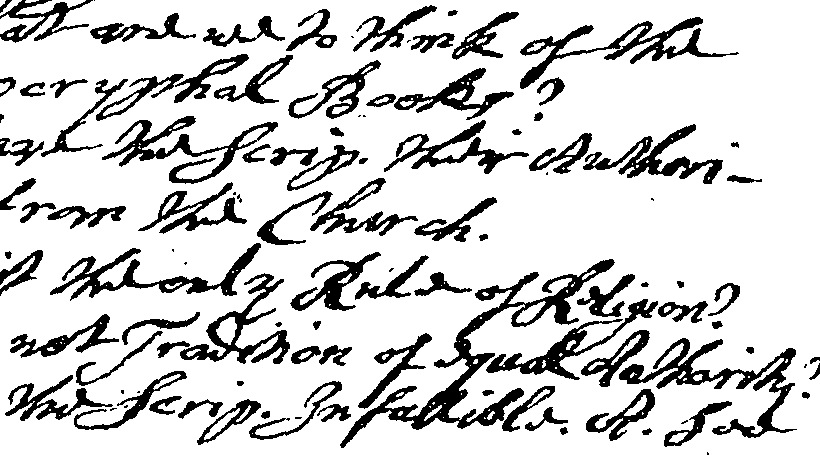 at are we to think of the
ocryphal Books?
ave the Scrip. their Authori-
from the Church.
it the only Rule of Religion?
not Tradition of equal Authority?
the Scrip. Infallible. A.